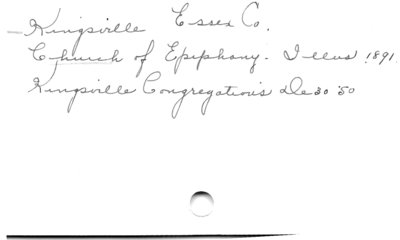 Kingsville Essex Co.
Church of Epiphany. Illus 1891.
Kingsville Congregations De 30 '50